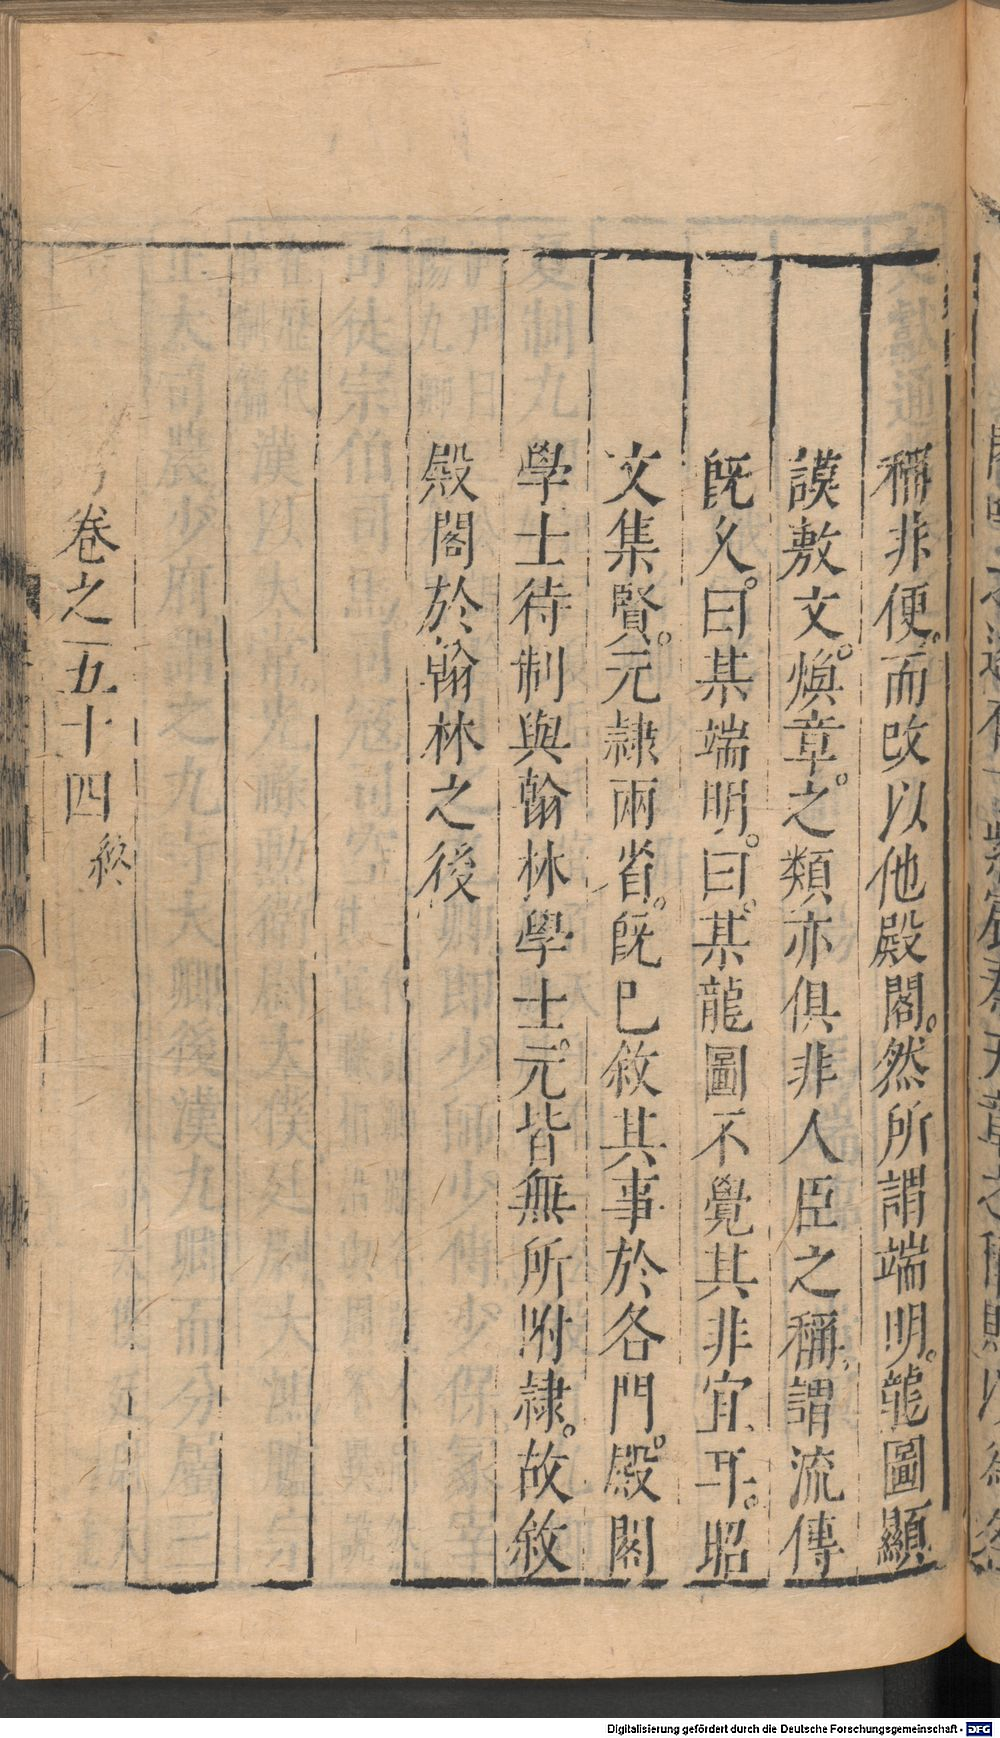 稱非便。而改以他殿閣。然所謂端明。龍圖顯
謨敷文。煥章。之類亦俱非人臣之稱謂流傳
旣久。曰某端明。曰某龍圖不覺其非宜耳。昭
文集賢。元隷兩省。旣巳敘其事於各門。殿閣
學士待制與翰林學士。元皆無所附隷。故敘
殿閣於翰林之後
卷之五十四終
Digitalisierung gefördert durch die Deutsche Forschungsgemeinschaft - DFG